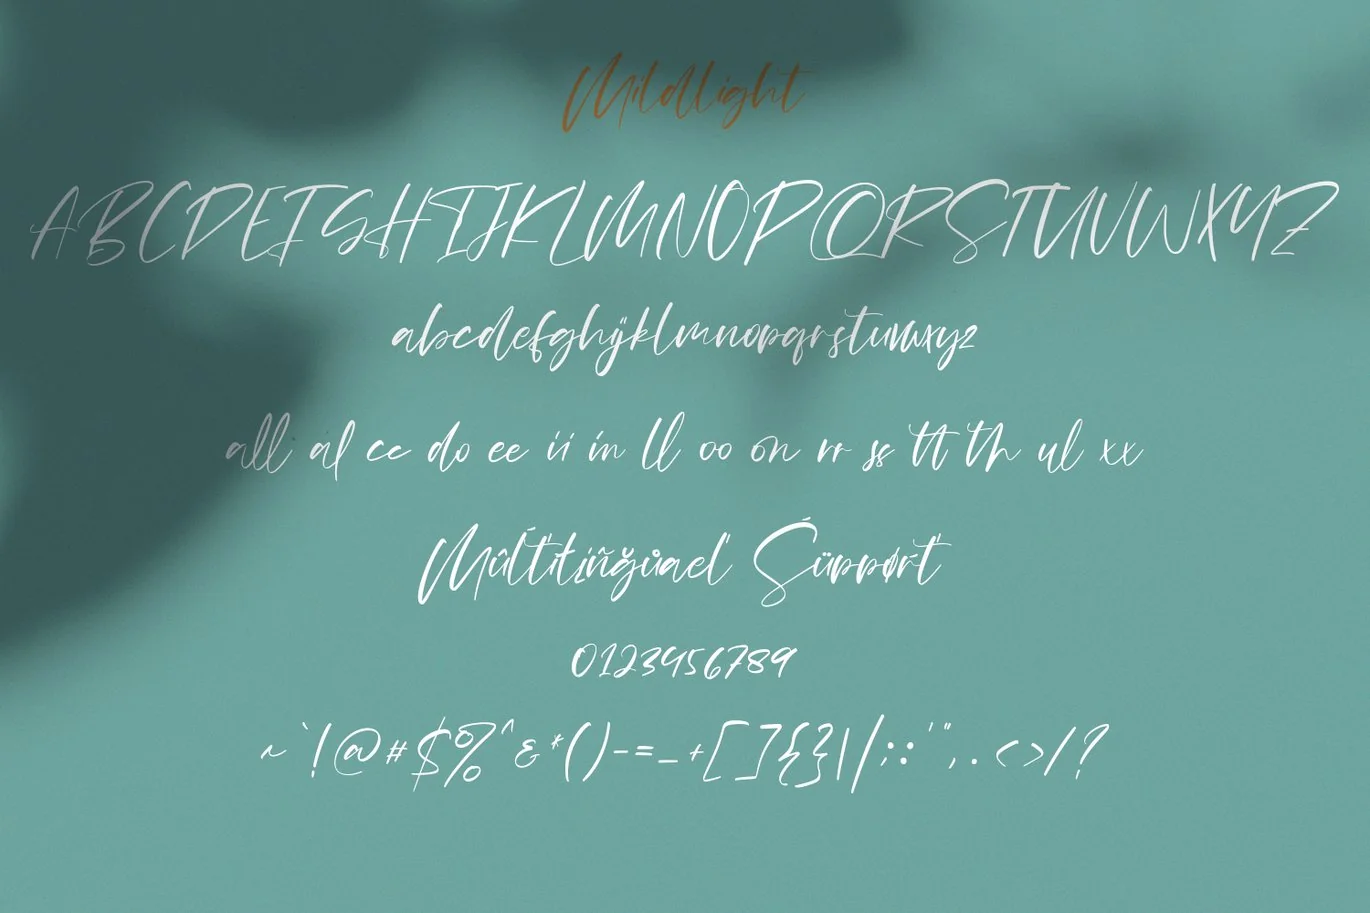 Mildlight
ABCDEFGHIJKLMNOPQRSTUVWXYZ
abcdefghijklmnopqrstuvwxyz
all al cc do ee ii in ll oo on rr ss tt th ul xx
Mûltĭtłíñğůael Śüppørt
0123456789
~`!@#$%^&*()-=_+[]{}|/;:'",.<>/?